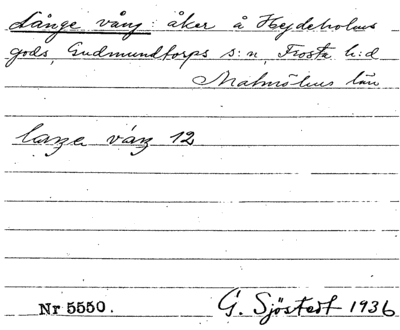 Långe vång: åker å Hejdeholms
gods, Gudmundtorps s:n, Frosta h:d
Malmöhus län
laŋe váŋ 12
Nr 5550.
G. Sjöstedt 1936